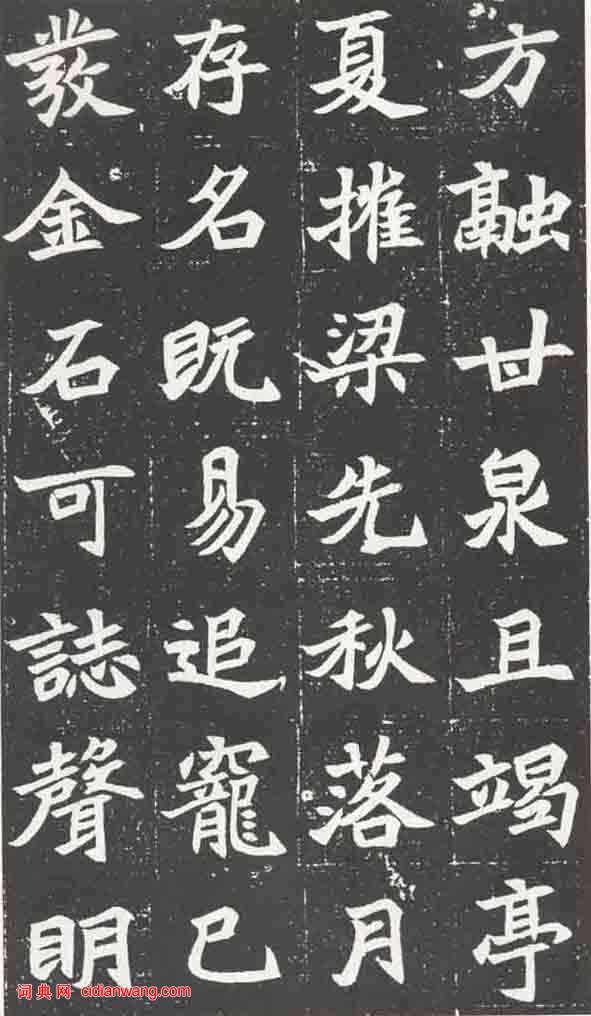 方融甘泉且竭亭
夏摧梁先秋落月
存名既易追寵已
發金石可誌聲眀
词典网 cidianwang.com